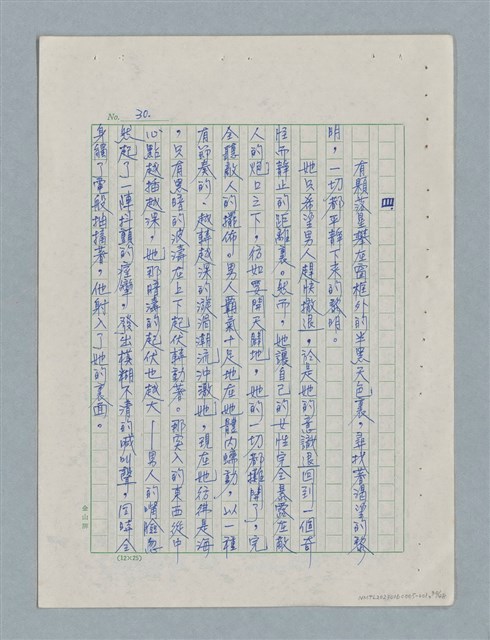 No. 30.
四
有顆落星攀在窗框外的半黑天色裏，尋找著渴望的黎
明，一切都平靜下來的黎明。
她只希望男人趕快撤退，於是她的意識退回到一個奇
怪而靜止的距離裏。然而，她讓自己的女性完全暴露在敵
人的炮口之下，彷如要開天闢地，她的一切都攤開了，完
全聽敵人的擺佈。男人霸氣十足地在她體內蠕動，以一種
有節奏的，越轉越深的漩渦潮流沖激她，現在她彷彿是海
，只有黑暗的波濤在上下起伏轉動著。那突入的東西從中
心點越插越深，她那暗濤的起伏也越大——男人的嘴臉忽
然起了一陣抖顫的痙攣，發出模糊不清的喊叫聲，同時全
身觸了電般抽搐著，他射入了她的裏面。
(12×25)